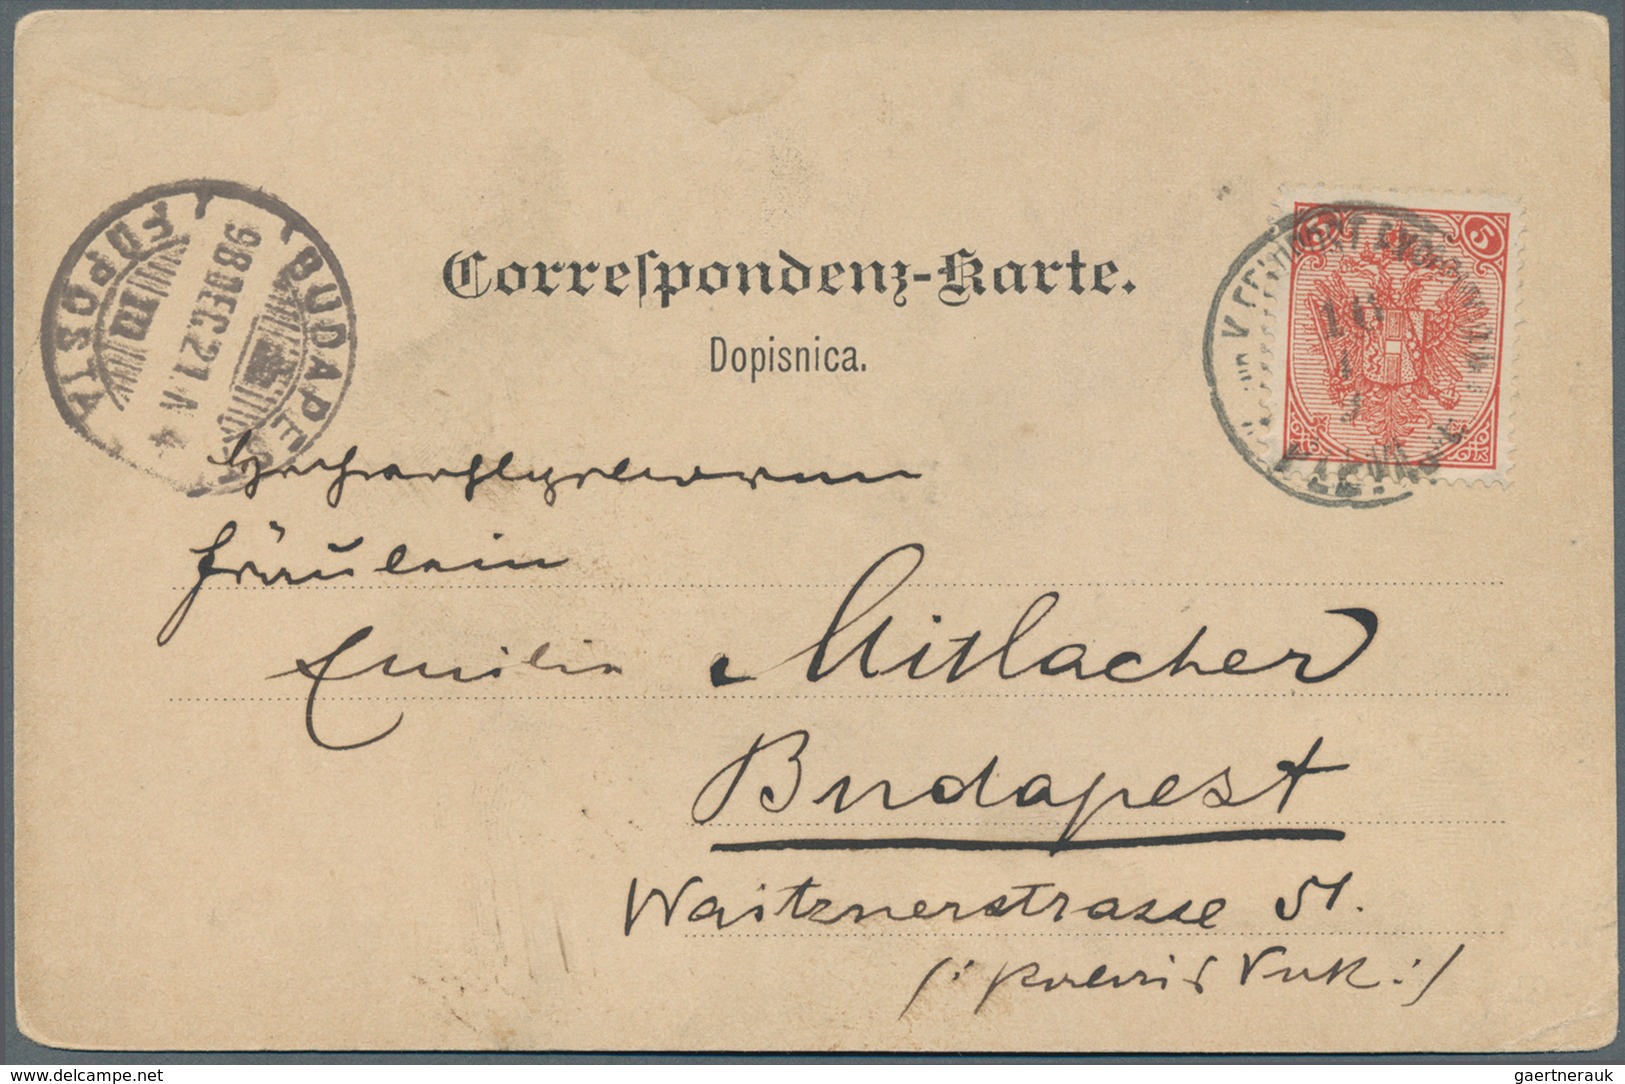 Correſpondenz-Karte.
Dopisnica.
BUDAPEST
98 DEC. 21. N 4
III
FŐPOSTA
5 5
16
PLEVLJE
Hochwohlgeboren
Fräulein
Emilie Mitlacher
Budapest
Waitznerstrasse 51.
(: Palais Vuk :)
gaertnerauk